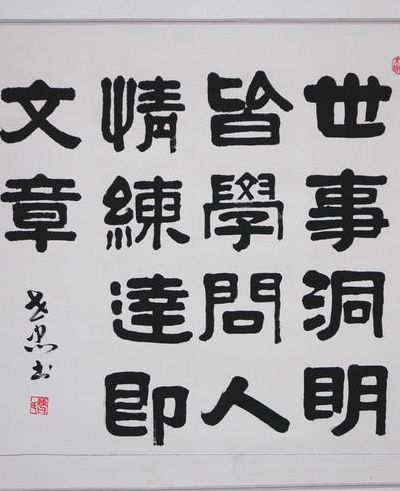 世事洞明
皆學問人
情練達即
文章